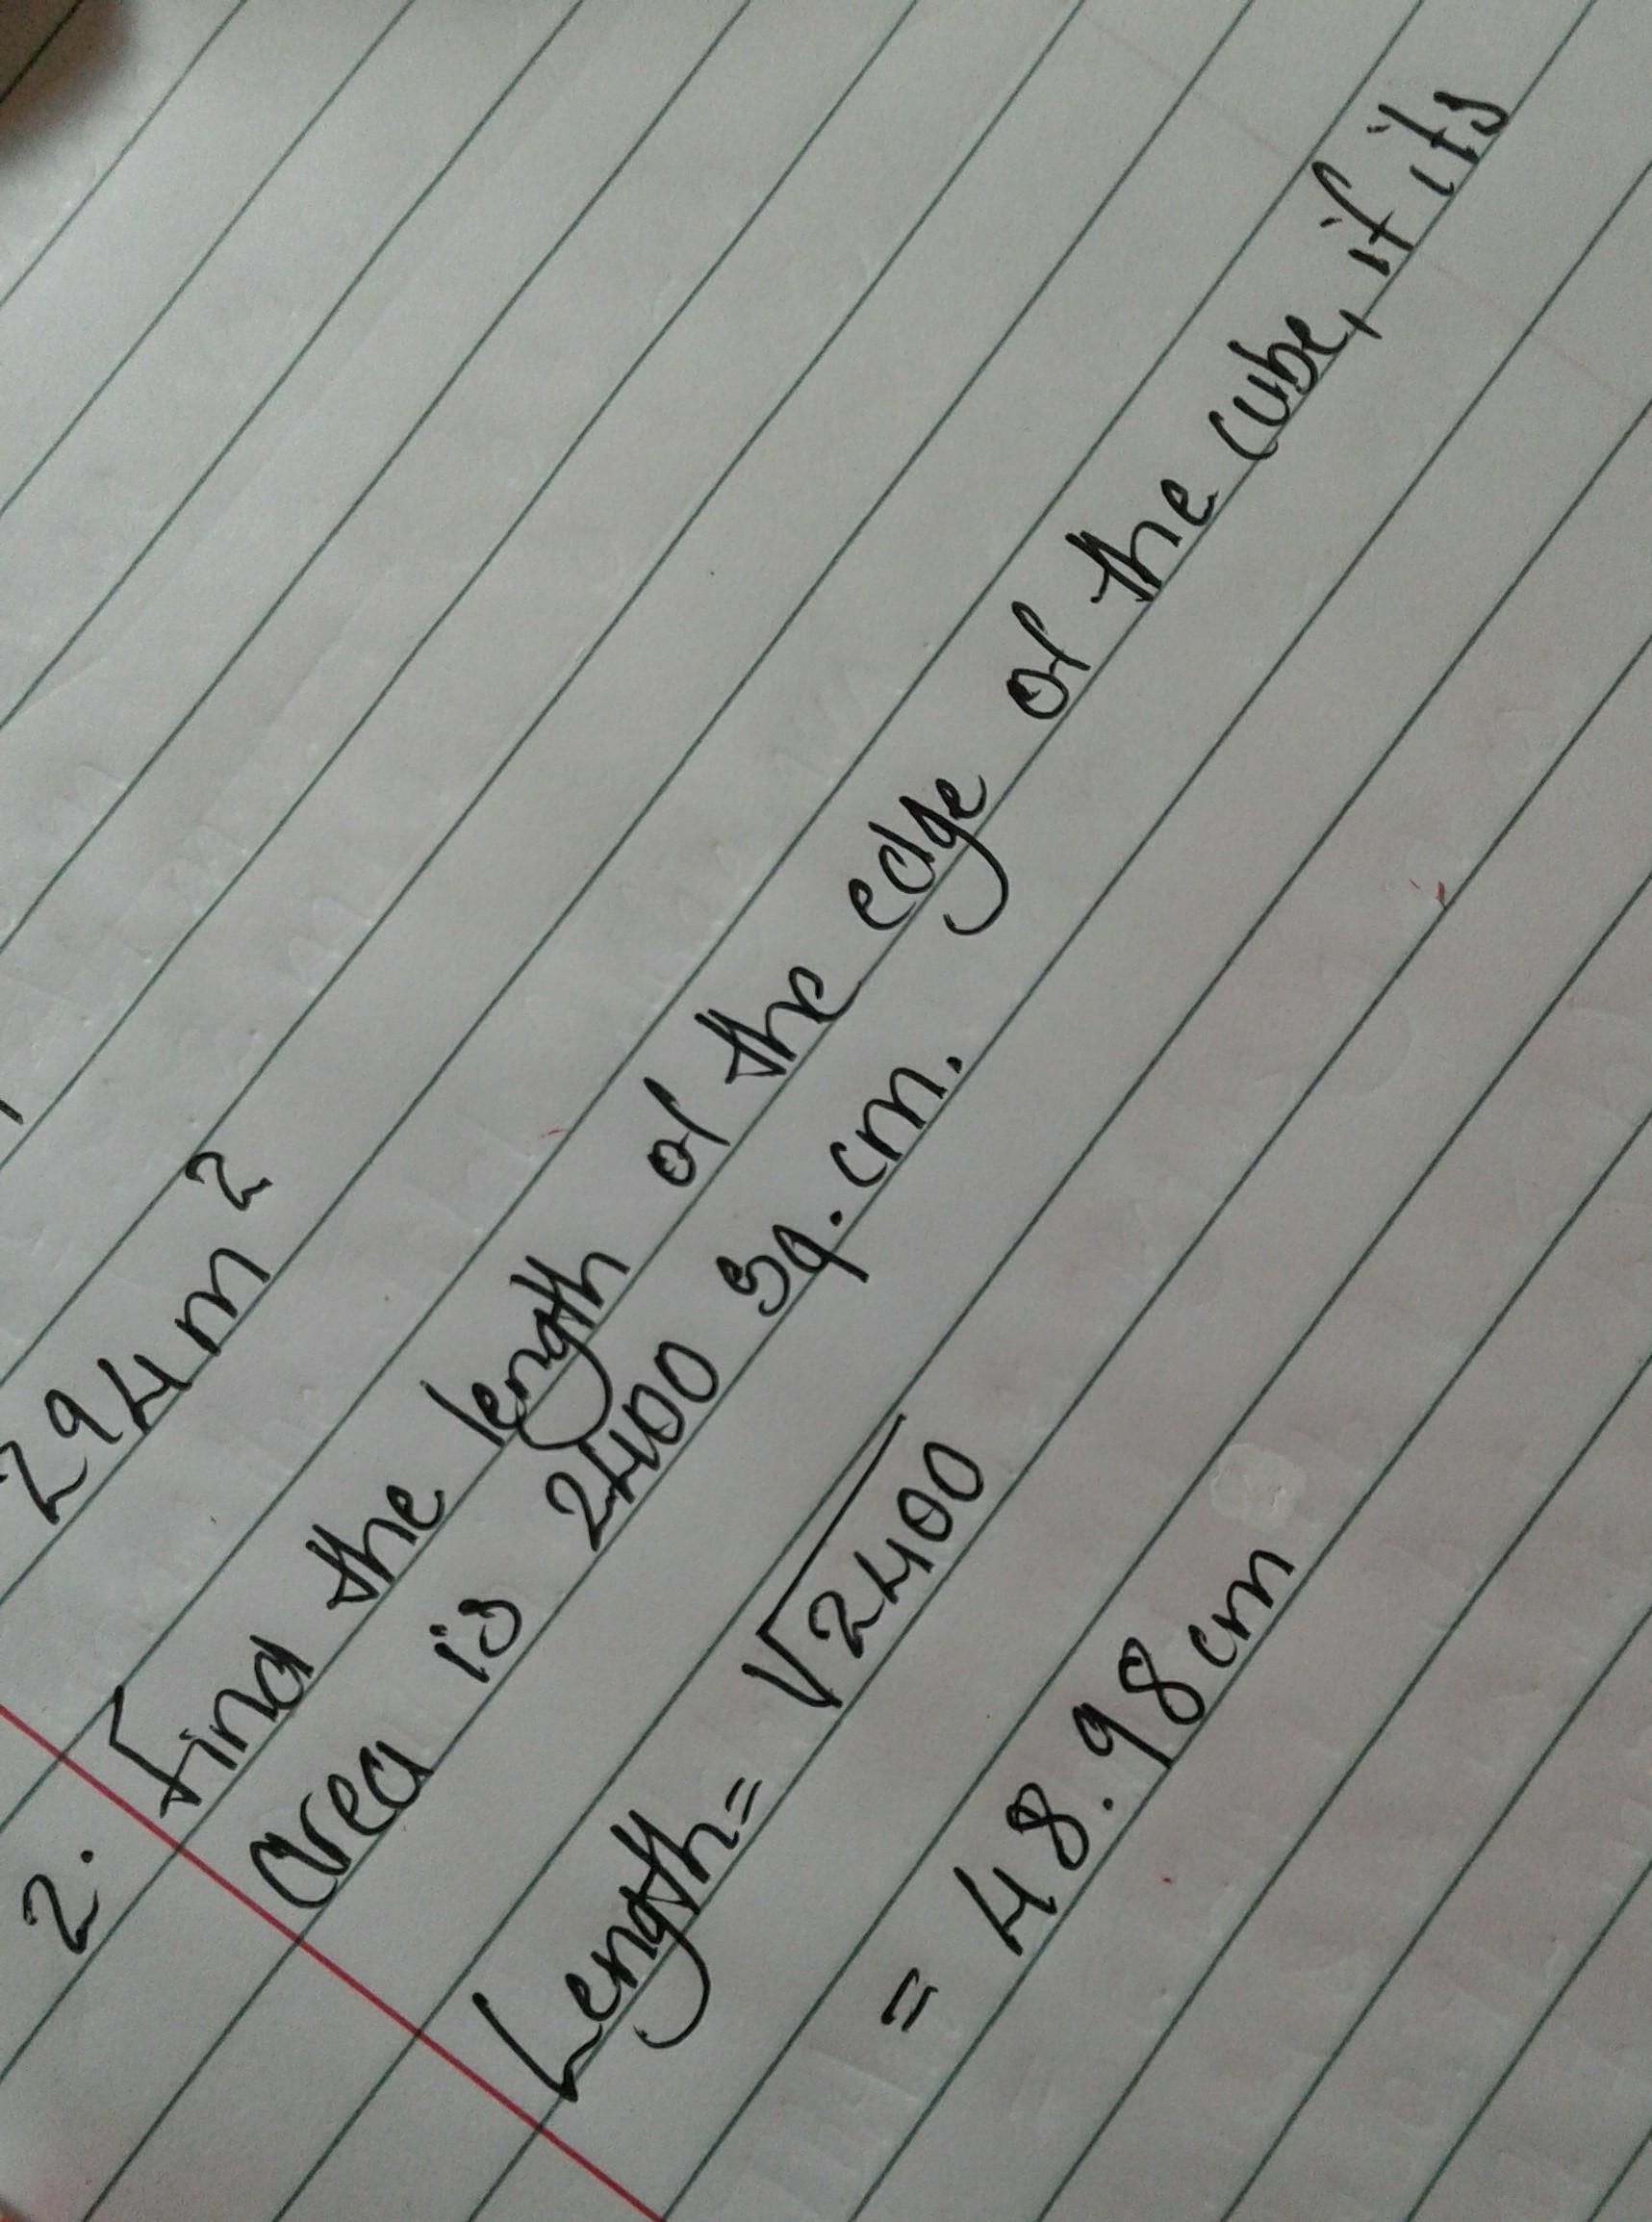 294m²
2. Find the length of the edge of the cube, if its
area is 2400 sq.cm.
Length = √2400
= 48.98cm